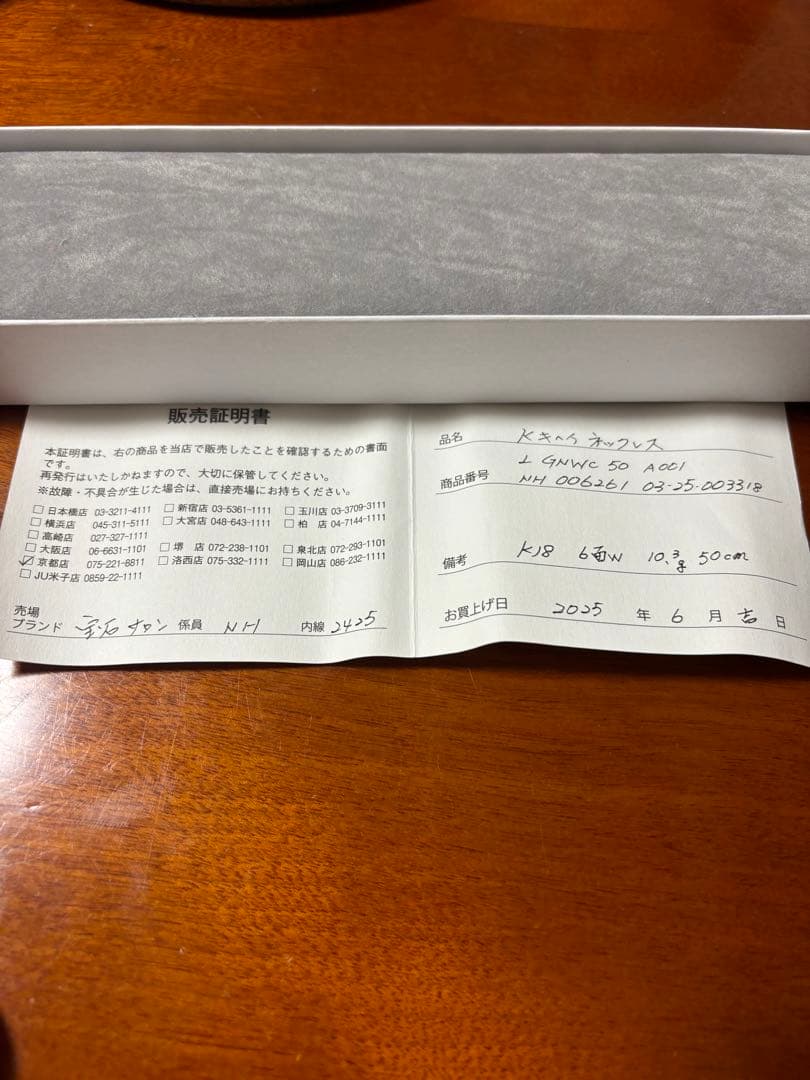 販売証明書
本証明書は、右の商品を当店で販売したことを確認するための書面
です。
再発行はいたしかねますので、大切に保管してください。
※故障・不具合が生じた場合は、直接売場にお持ちください。
□日本橋店 03-3211-4111 □新宿店 03-5361-1111 □玉川店 03-3709-3111
□横浜店 045-311-5111 □大宮店 048-643-1111 □柏 店 04-7144-1111
□高崎店 027-327-1111
□大阪店 06-6631-1101 □堺 店 072-238-1101 □泉北店 072-293-1101
☑京都店 075-221-8811 □洛西店 075-332-1111 □岡山店 086-232-1111
□JU米子店 0859-22-1111
売場
ブランド 宝石サロン 係員 NH 内線 2425
品名 Kキヘイ ネックレス
L GNWC 50 A001
商品番号 NH 006261 03-25-003318
備考 K18 6面W 10.3g 50cm
お買上げ日 2025 年 6 月 吉 日